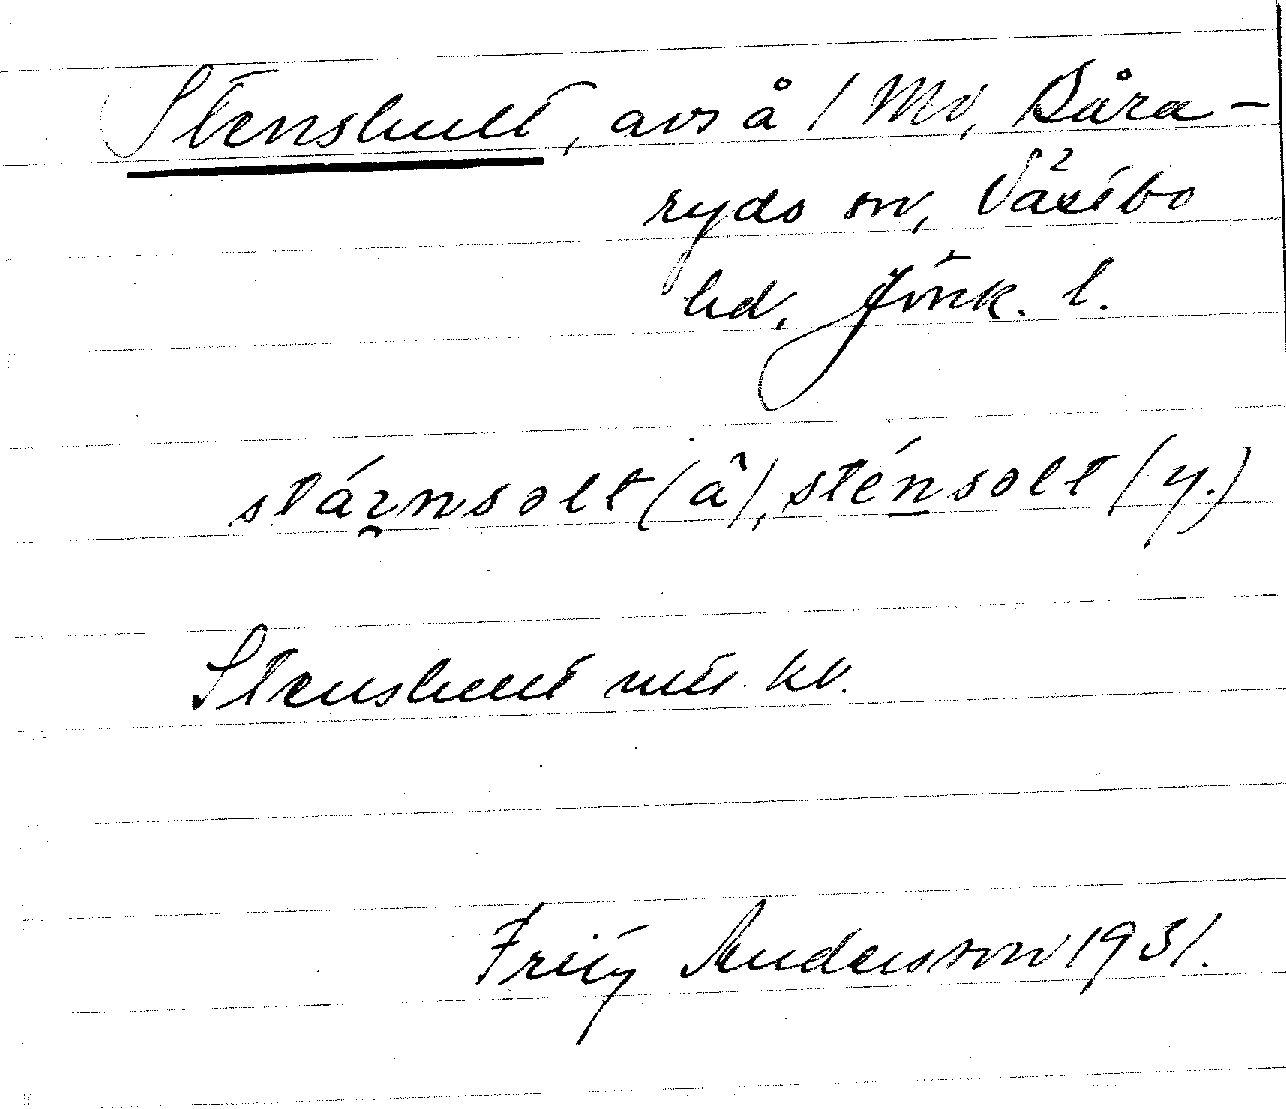 Stenshult, avs å 1 Mv, Båra-
ryds sn, Västbo
hd, Jönk. l.
stáznsolt (ä), sténsolt (y.)
Stenshult mtl kv.
Fritz Andersson 1931.